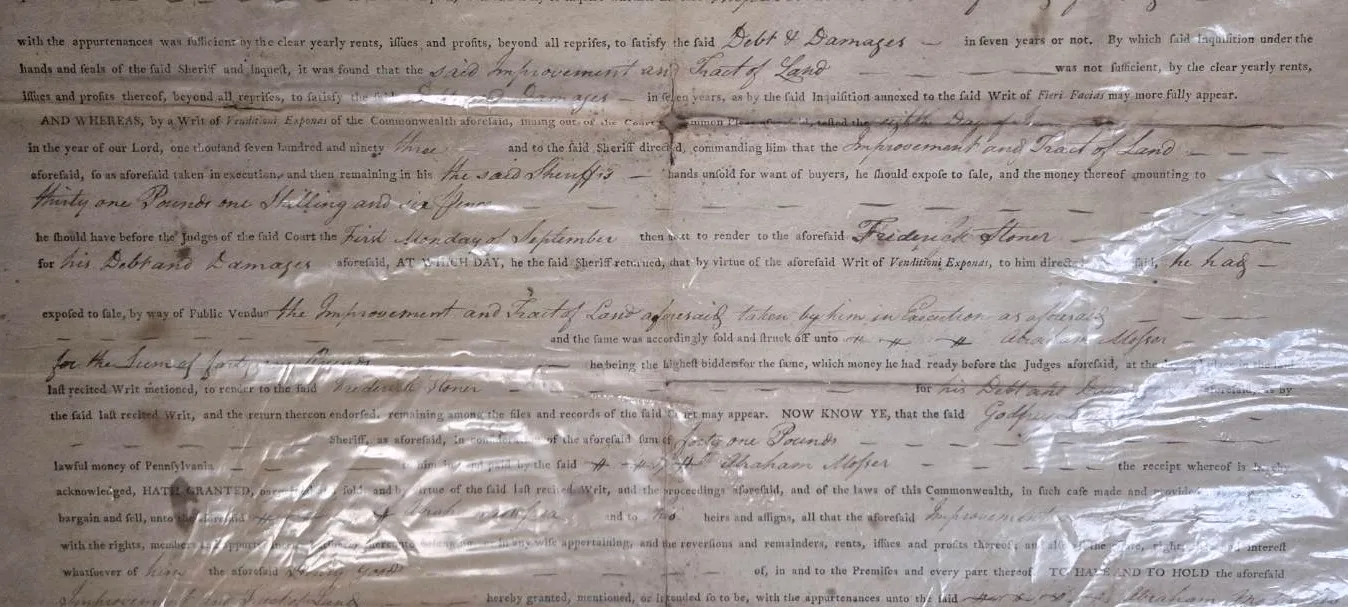 with the appurtenances was ſufficient by the clear yearly rents, iſſues and profits, beyond all repriſes, to ſatisfy the ſaid Debt & Damages — in ſeven years or not. By which ſaid Inquiſition under the
hands and ſeals of the ſaid Sheriff and Inqueſt, it was found that the said Improvement and Tract of Land — — — — — was not ſufficient, by the clear yearly rents,
iſſues and profits thereof, beyond all repriſes, to ſatisfy the ſaid Debt and Damages — in ſeven years, as by the ſaid Inquiſition annexed to the ſaid Writ of Fieri Facias may more fully appear.
AND WHEREAS, by a Writ of Venditioni Exponas of the Commonwealth aforeſaid, iſſuing out of the Court Common Pleas aforeſaid, teſted the eighth Day of
in the year of our Lord, one thouſand ſeven hundred and ninety three and to the ſaid Sheriff directed, commanding him that the Improvement and Tract of Land — — —
aforeſaid, ſo as aforeſaid taken in execution, and then remaining in his the said Sheriffs — hands unſold for want of buyers, he ſhould expoſe to ſale, and the money thereof amounting to
thirty one Pounds one Shilling and six Pence
he ſhould have before the Judges of the ſaid Court the First Monday of September then next to render to the aforeſaid Frederick Stoner —
for his Debt and Damages aforeſaid, AT WHICH DAY, he the ſaid Sheriff returned, that by virtue of the aforeſaid Writ of Venditioni Exponas, to him directed ſaid, he had —
expoſed to ſale, by way of Public Vendue the Improvement and Tract of Land aforesaid taken by him in Execution as aforesaid
— — — and the ſame was accordingly ſold and ſtruck off unto Abraham Mosser —
for the Sum of forty one Pounds — — he being the higheſt bidders for the ſame, which money he had ready before the Judges aforeſaid, at the
laſt recited Writ metioned, to render to the ſaid Frederick Stoner — — for his Debt and aforeſaid, as by
the ſaid laſt recited Writ, and the return thereon endorſed, remaining among the files and records of the ſaid Court may appear. NOW KNOW YE, that the ſaid
— — Sheriff, as aforeſaid, in conſideration of the aforeſaid ſum of forty one Pounds
lawful money of Pennſylvania to him in paid by the ſaid Abraham Mosser — — — the receipt whereof is
acknowledged, HATH GRANTED, ſold, and by virtue of the ſaid laſt recited Writ, and the proceedings aforeſaid, and of the laws of this Commonwealth, in ſuch caſe made and provided
bargain and ſell, unto the aforeſaid and to his heirs and aſſigns, all that the aforeſaid Improvement
with the rights, members in any wiſe appertaining, and the reverſions and remainders, rents, iſſues and profits thereof; intereſt
whatſoever of him the aforeſaid — — of, in and to the Premiſes and every part thereof. TO HAVE AND TO HOLD the aforeſaid
Improvement and Tract of Land hereby granted, mentioned, or intended ſo to be, with the appurtenances unto the ſaid Abraham